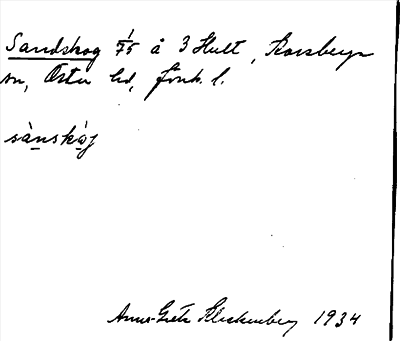 Sandskog 1/75 å 3 Hult, Korsberga
sn, Östra hd, Jönk. l.
sànskò̱j
Anna-Greta Kleckenberg 1934